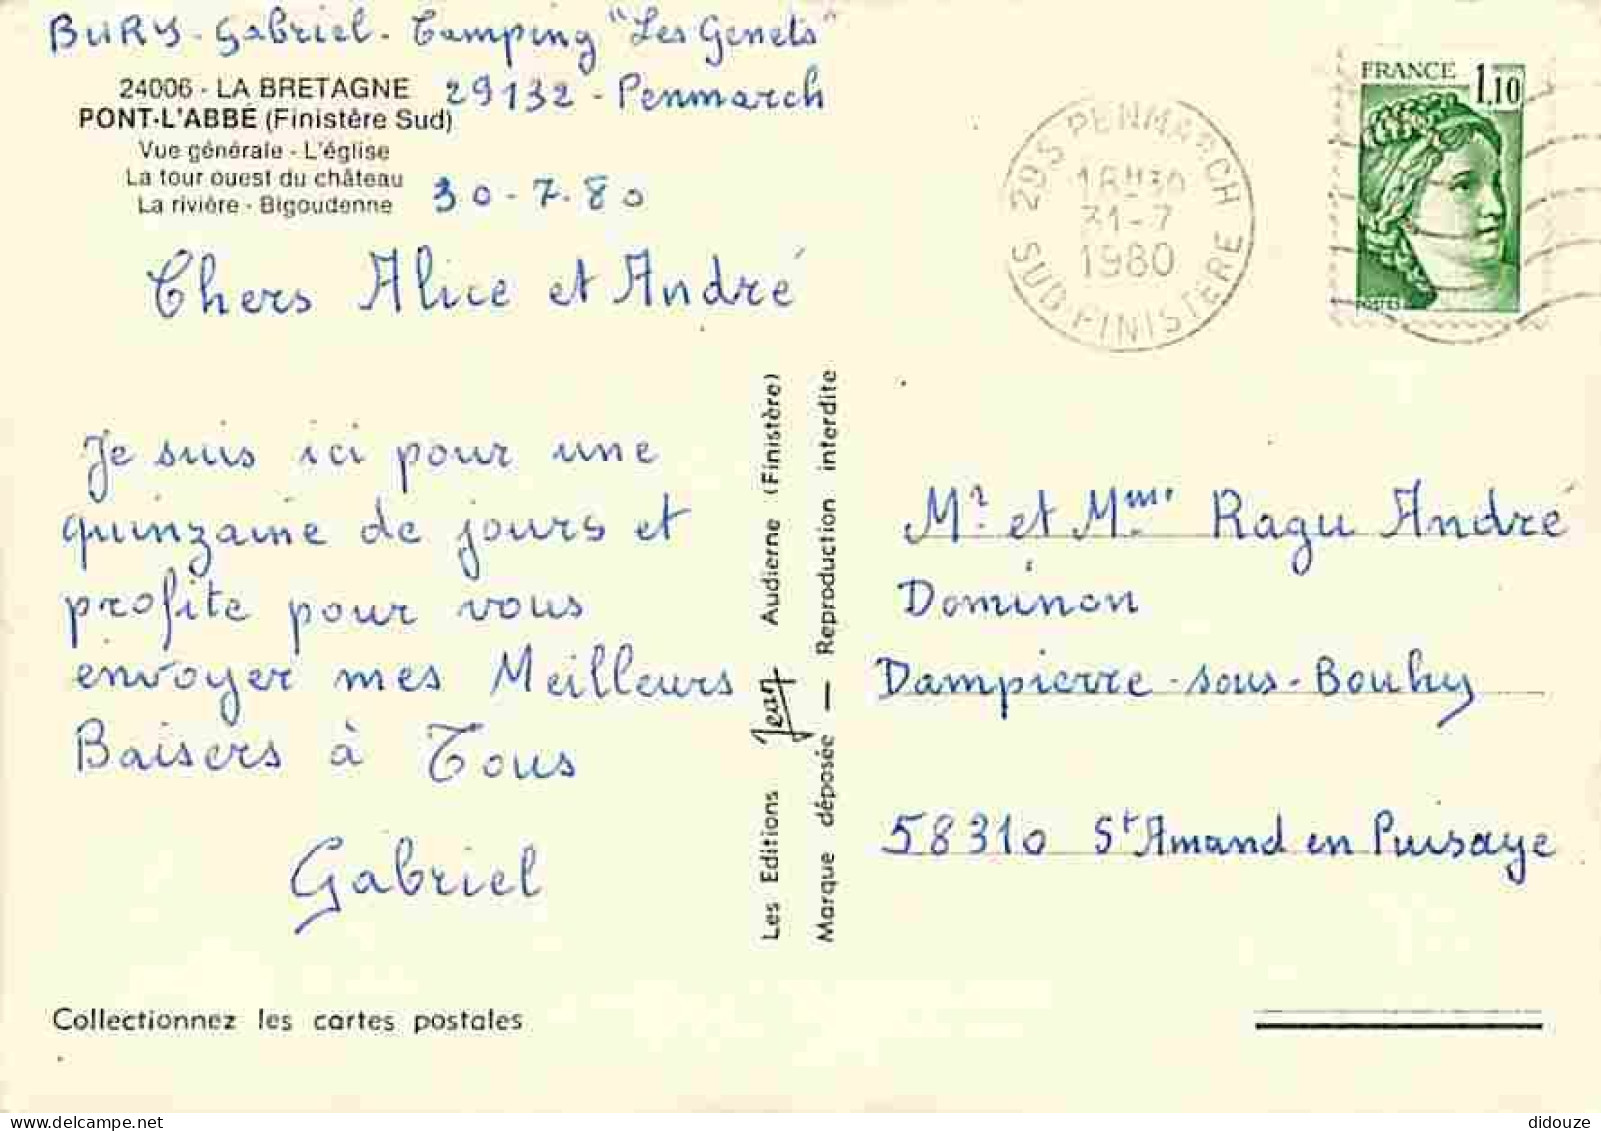 BURY - Gabriel - Camping "Les Genets"
29132 - Penmarch
24006 - LA BRETAGNE
PONT-L'ABBÉ (Finistère Sud)
Vue générale - L'église
La tour ouest du château
La rivière - Bigoudenne
30-7-80
Chers Alice et André
Je suis ici pour une
quinzaine de jours et
profite pour vous
envoyer mes Meilleurs
Baisers à Tous
Gabriel
Collectionnez les cartes postales
Les Editions Jean Audierne (Finistère)
Marque déposée — Reproduction interdite
29S PENMARCH
18H30
31-7
1980
SUD-FINISTERE
FRANCE 1,10
POSTES
Mr. et Mme. Ragu André
Dominon
Dampierre-sous-Bouhy
58310 St Amand en Puisaye
didouze